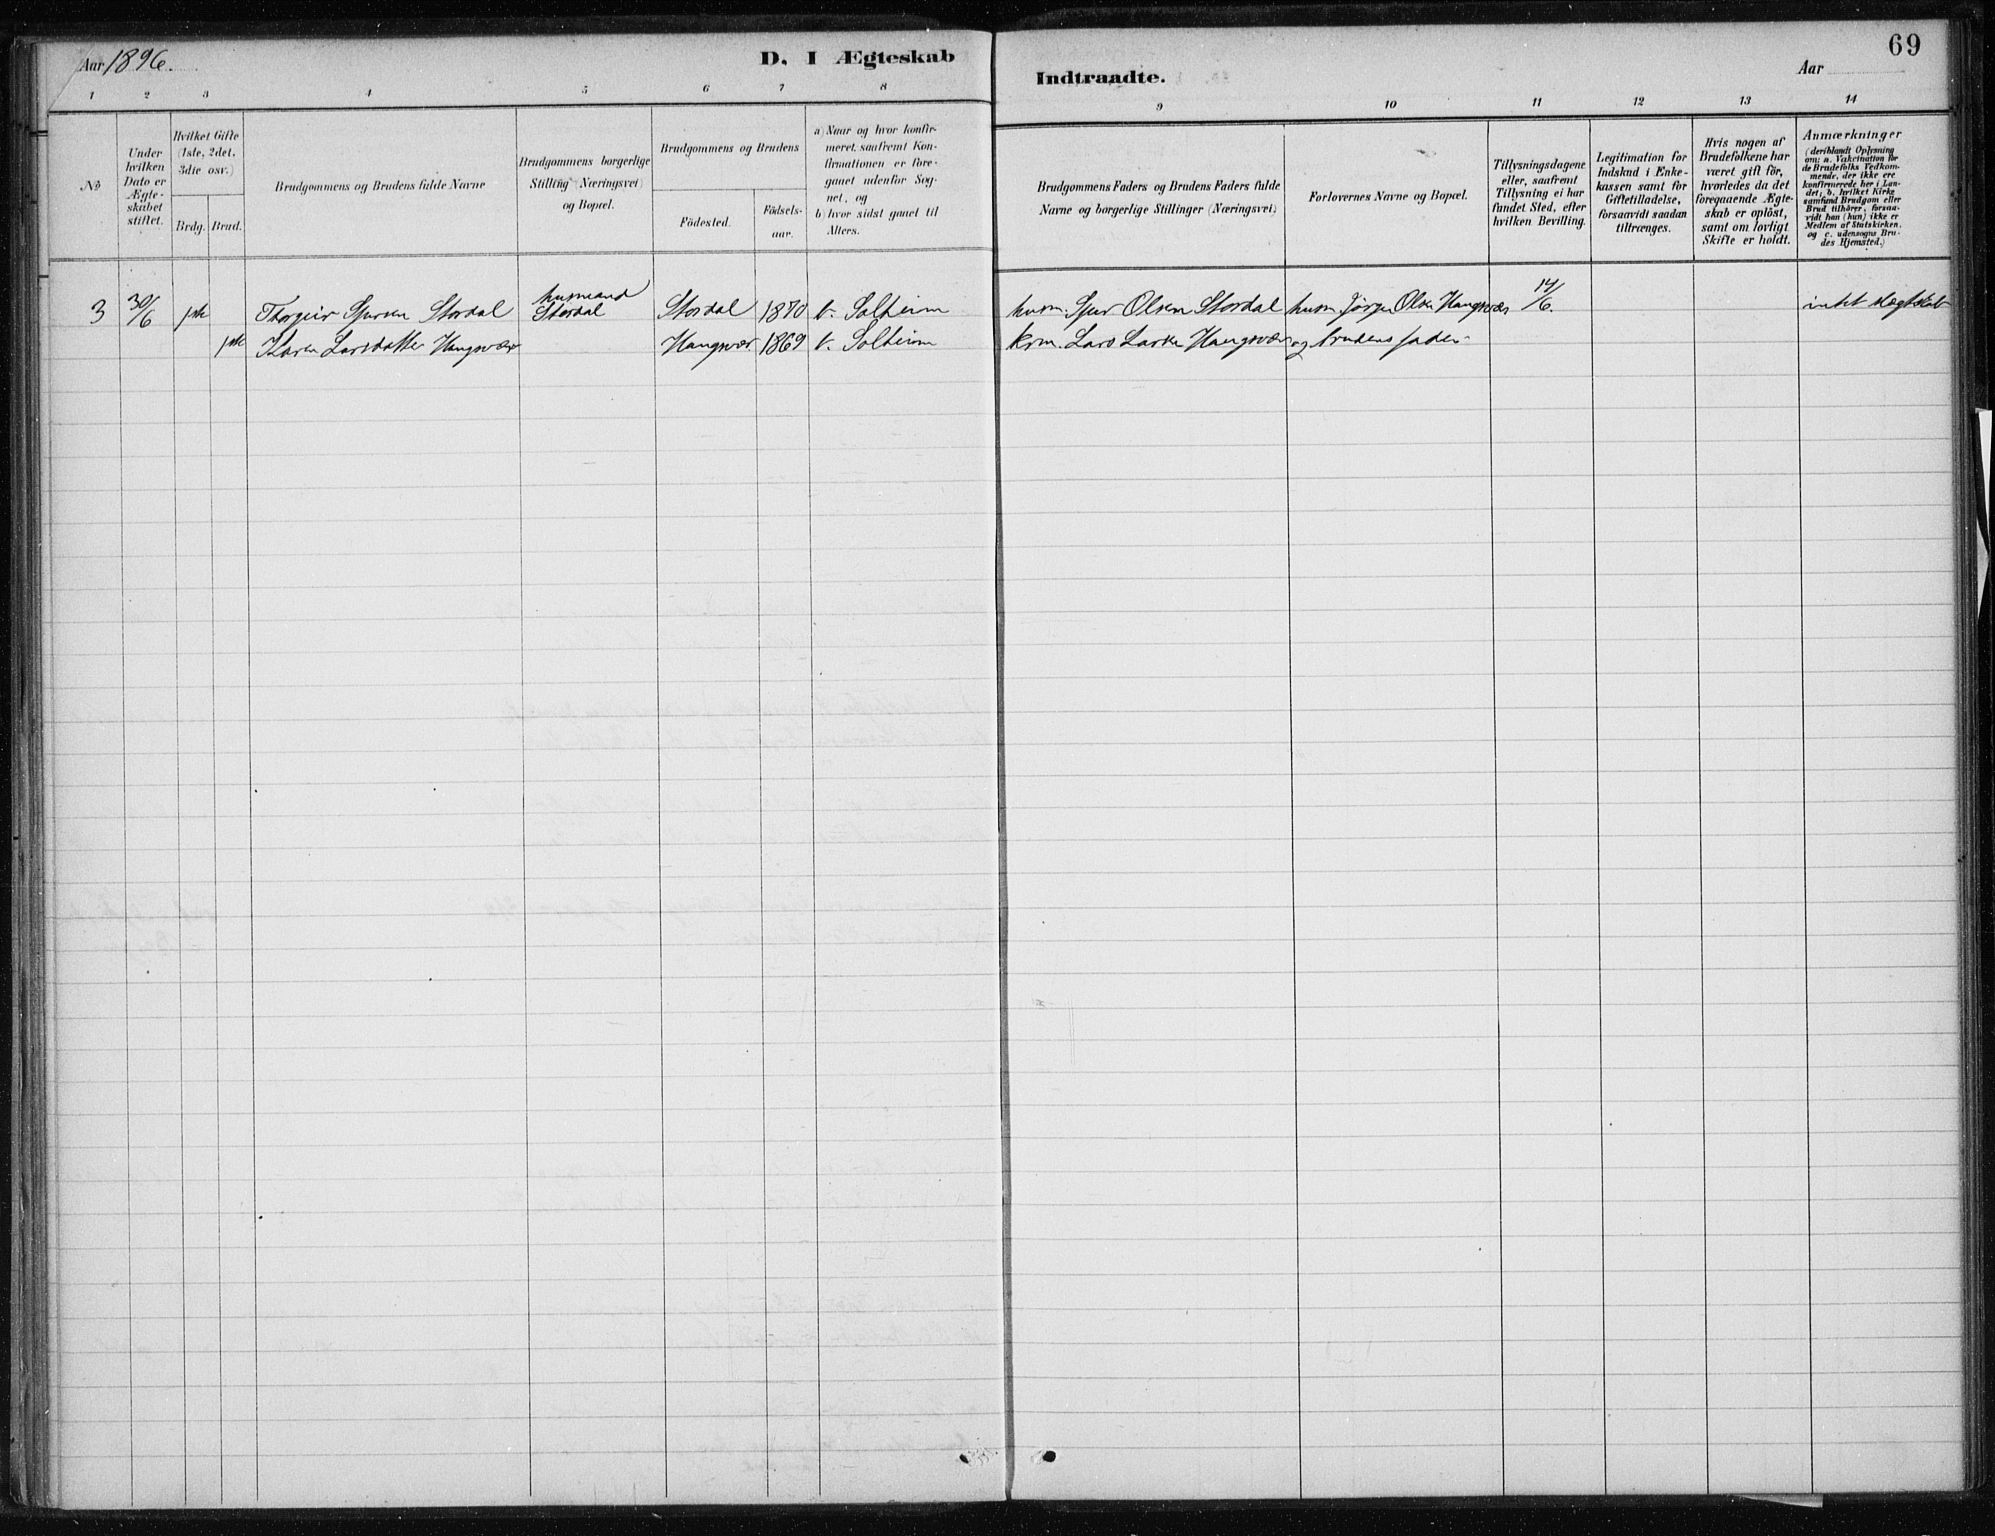 Aar 1896.
D. I Ægteskab
Indtraadte.
Aar
69
1 2 3 4 5 6 7 8 9 10 11 12 13 14
No
Under hvilken Dato er Ægteskabet stiftet.
Hvilket Gifte (1ste, 2det, 3die osv.)
Brdg. Brud.
Brudgommens og Brudens fulde Navne
Brudgommens borgerlige Stilling (Næringsvei) og Bopæl.
Brudgommens og Brudens
Födested.
Födsels-
aar.
a) Naar og hvor konfir-
meret, saafremt Kon-
firmationen er fore-
gaaet udenfor Sog-
net, og
b) hvor sidst gaaet til
Alters.
Brudgommens Faders og Brudens Faders fulde
Navne og borgerlige Stillinger (Næringsvei)
Forlovernes Navne og Bopæl.
Tillysningsdagene
eller, saafremt
Tillysning ei har
fundet Sted, efter
hvilken Bevilling.
Legitimation for
Indskud i Enke-
kassen samt for
Giftetilladelse,
forsaavidt saadan
tiltrænges.
Hvis nogen af
Brudefolkene har
været gift för,
hvorledes da det
foregaaende Ægte-
skab er oplöst,
samt om lovligt
Skifte er holdt.
Anmærkninger
(deriblandt Oplysning
om: a. Vakcination for
de Brudefolks Vedkom-
mende, der ikke ere
konfirmerede her i Lan-
det, b. hvilket Kirke
samfund Brudgom eller
Brud tilhörer, forsaa-
vidt han (hun) ikke er
Medlem af Statskirken,
og c. udensogns Bru-
des Hjemsted.)
3 30/6 1ste Thorgeir Sjursen Stordal husmand Stordal Stordal 1870 b. Solheim husm. Sjur Olsen Stordal husm. Jörgen Olsen Haugsvær 14/6. intet slægtskab
1ste Karen Larsdatter Haugsvær Haugsvær 1869 b. Solheim krm. Lars Larsen Haugsvær og brudens fader